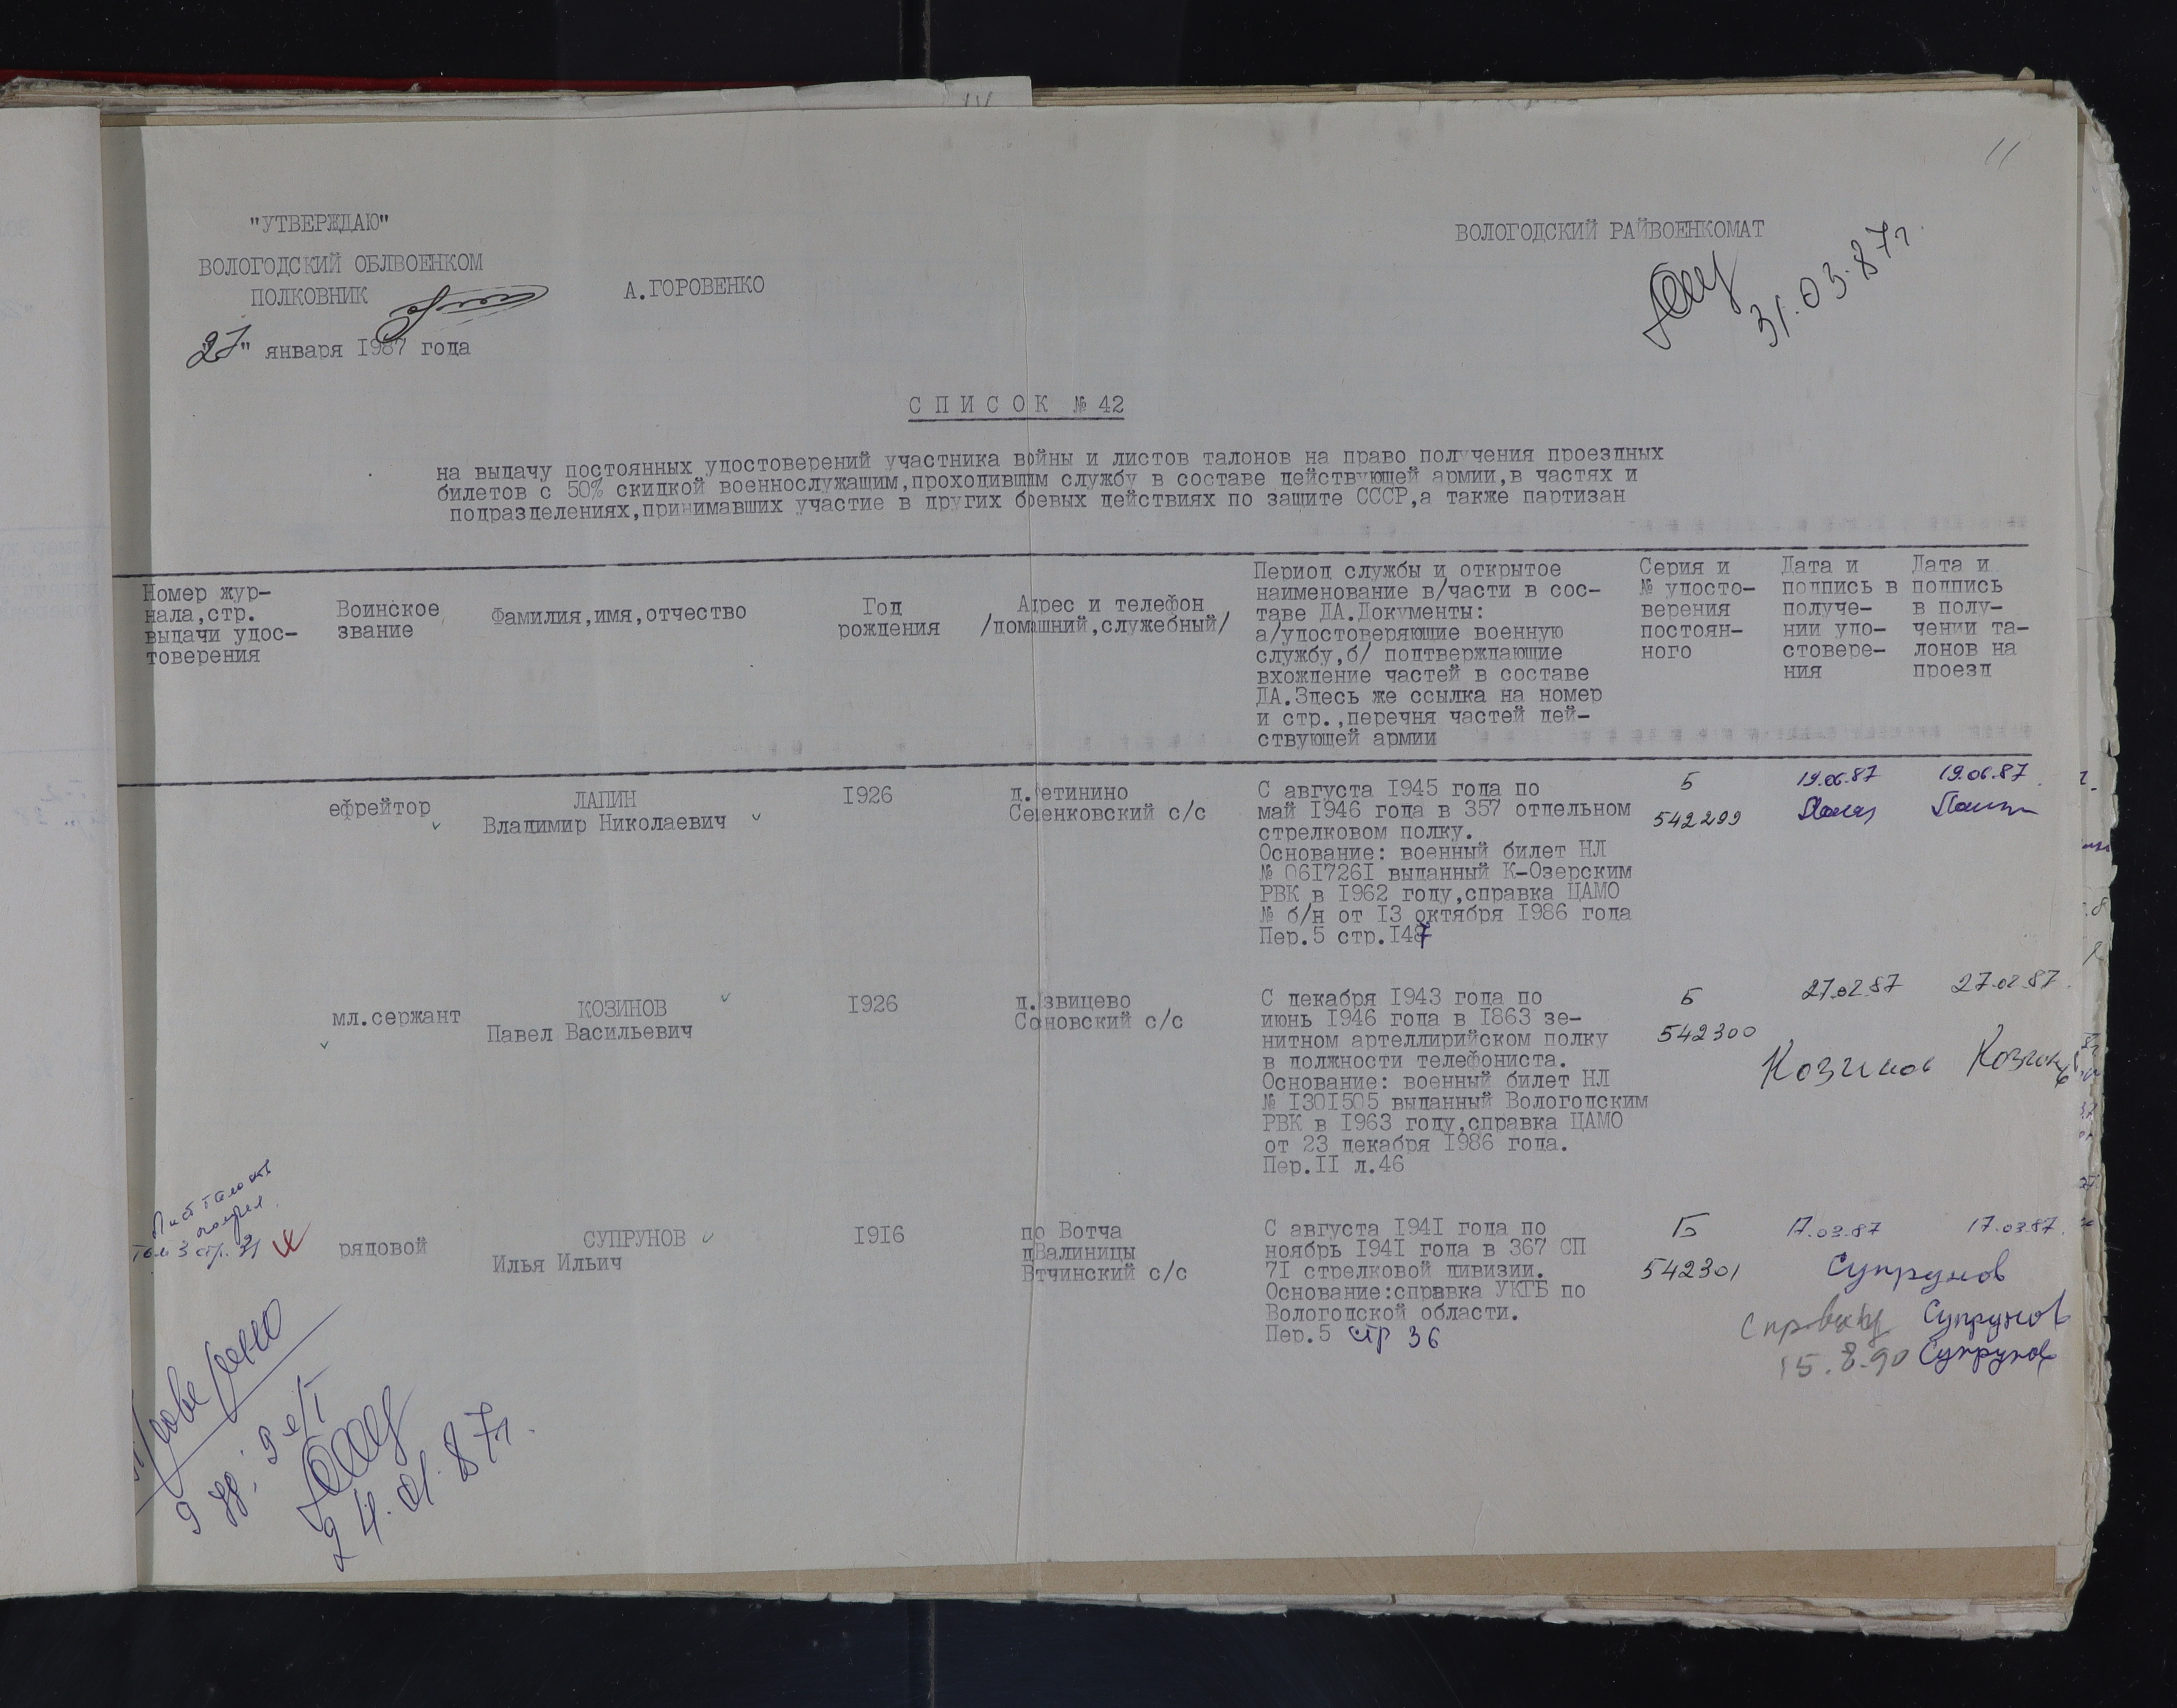 11
"УТВЕРЖДАЮ"
ВОЛОГОДСКИЙ ОБЛВОЕНКОМ
ПОЛКОВНИК
А.ГОРОВЕНКО
27" января 1987 года
ВОЛОГОДСКИЙ РАЙВОЕНКОМАТ
31.03.87г.
СПИСОК № 42
на выдачу постоянных удостоверений участника войны и листов талонов на право получения проездных
билетов с 50% скидкой военнослужащим,проходившим службу в составе действующей армии,в частях и
подразделениях,принимавших участие в других боевых действиях по защите СССР,а также партизан
Номер жур-
нала,стр.
выдачи удос-
товерения
Воинское
звание
Фамилия,имя,отчество
Год
рождения
Адрес и телефон
/домашний,служебный/
Период службы и открытое
наименование в/части в сос-
таве ДА.Документы:
а/удостоверяющие военную
службу,б/ подтверждающие
вхождение частей в составе
ДА.Здесь же ссылка на номер
и стр.,перечня частей дей-
ствующей армии
Серия и
№ удосто-
верения
постоян-
ного
Дата и
подпись в
получе-
нии удо-
стовере-
ния
Дата и
подпись
в полу-
чении та-
лонов на
проезд
ефрейтор
ЛАПИН
Владимир Николаевич
1926
д. етинино
Семенковский с/с
С августа 1945 года по
май 1946 года в 357 отдельном
стрелковом полку.
Основание: военный билет НЛ
№ 0617261 выданный К-Озерским
РВК в 1962 году,справка ЦАМО
№ б/н от 13 октября 1986 года
Пер.5 стр.147
Б
542299
19.06.87
19.06.87
мл.сержант
КОЗИНОВ
Павел Васильевич
1926
д. звицево
С новский с/с
С декабря 1943 года по
июнь 1946 года в 1863 зе-
нитном артеллирийском полку
в должности телефониста.
Основание: военный билет НЛ
№ 1301505 выданный Вологодским
РВК в 1963 году,справка ЦАМО
от 23 декабря 1986 года.
Пер.11 л.46
Б
542300
27.02.87
27.02.87
Козинов
Козинов
Лист талонов
получил
том 3 стр. 21
рядовой
СУПРУНОВ
Илья Ильич
1916
по Вотча
дВалиницы
Втчинский с/с
С августа 1941 года по
ноябрь 1941 года в 367 СП
71 стрелковой дивизии.
Основание:справка УКГБ по
Вологодской области.
Пер.5 стр 36
Б
542301
17.03.87
17.03.87
Супрунов
Справку Супрунов
15.8.90 Супрунов
Проверено
24.01.87г.